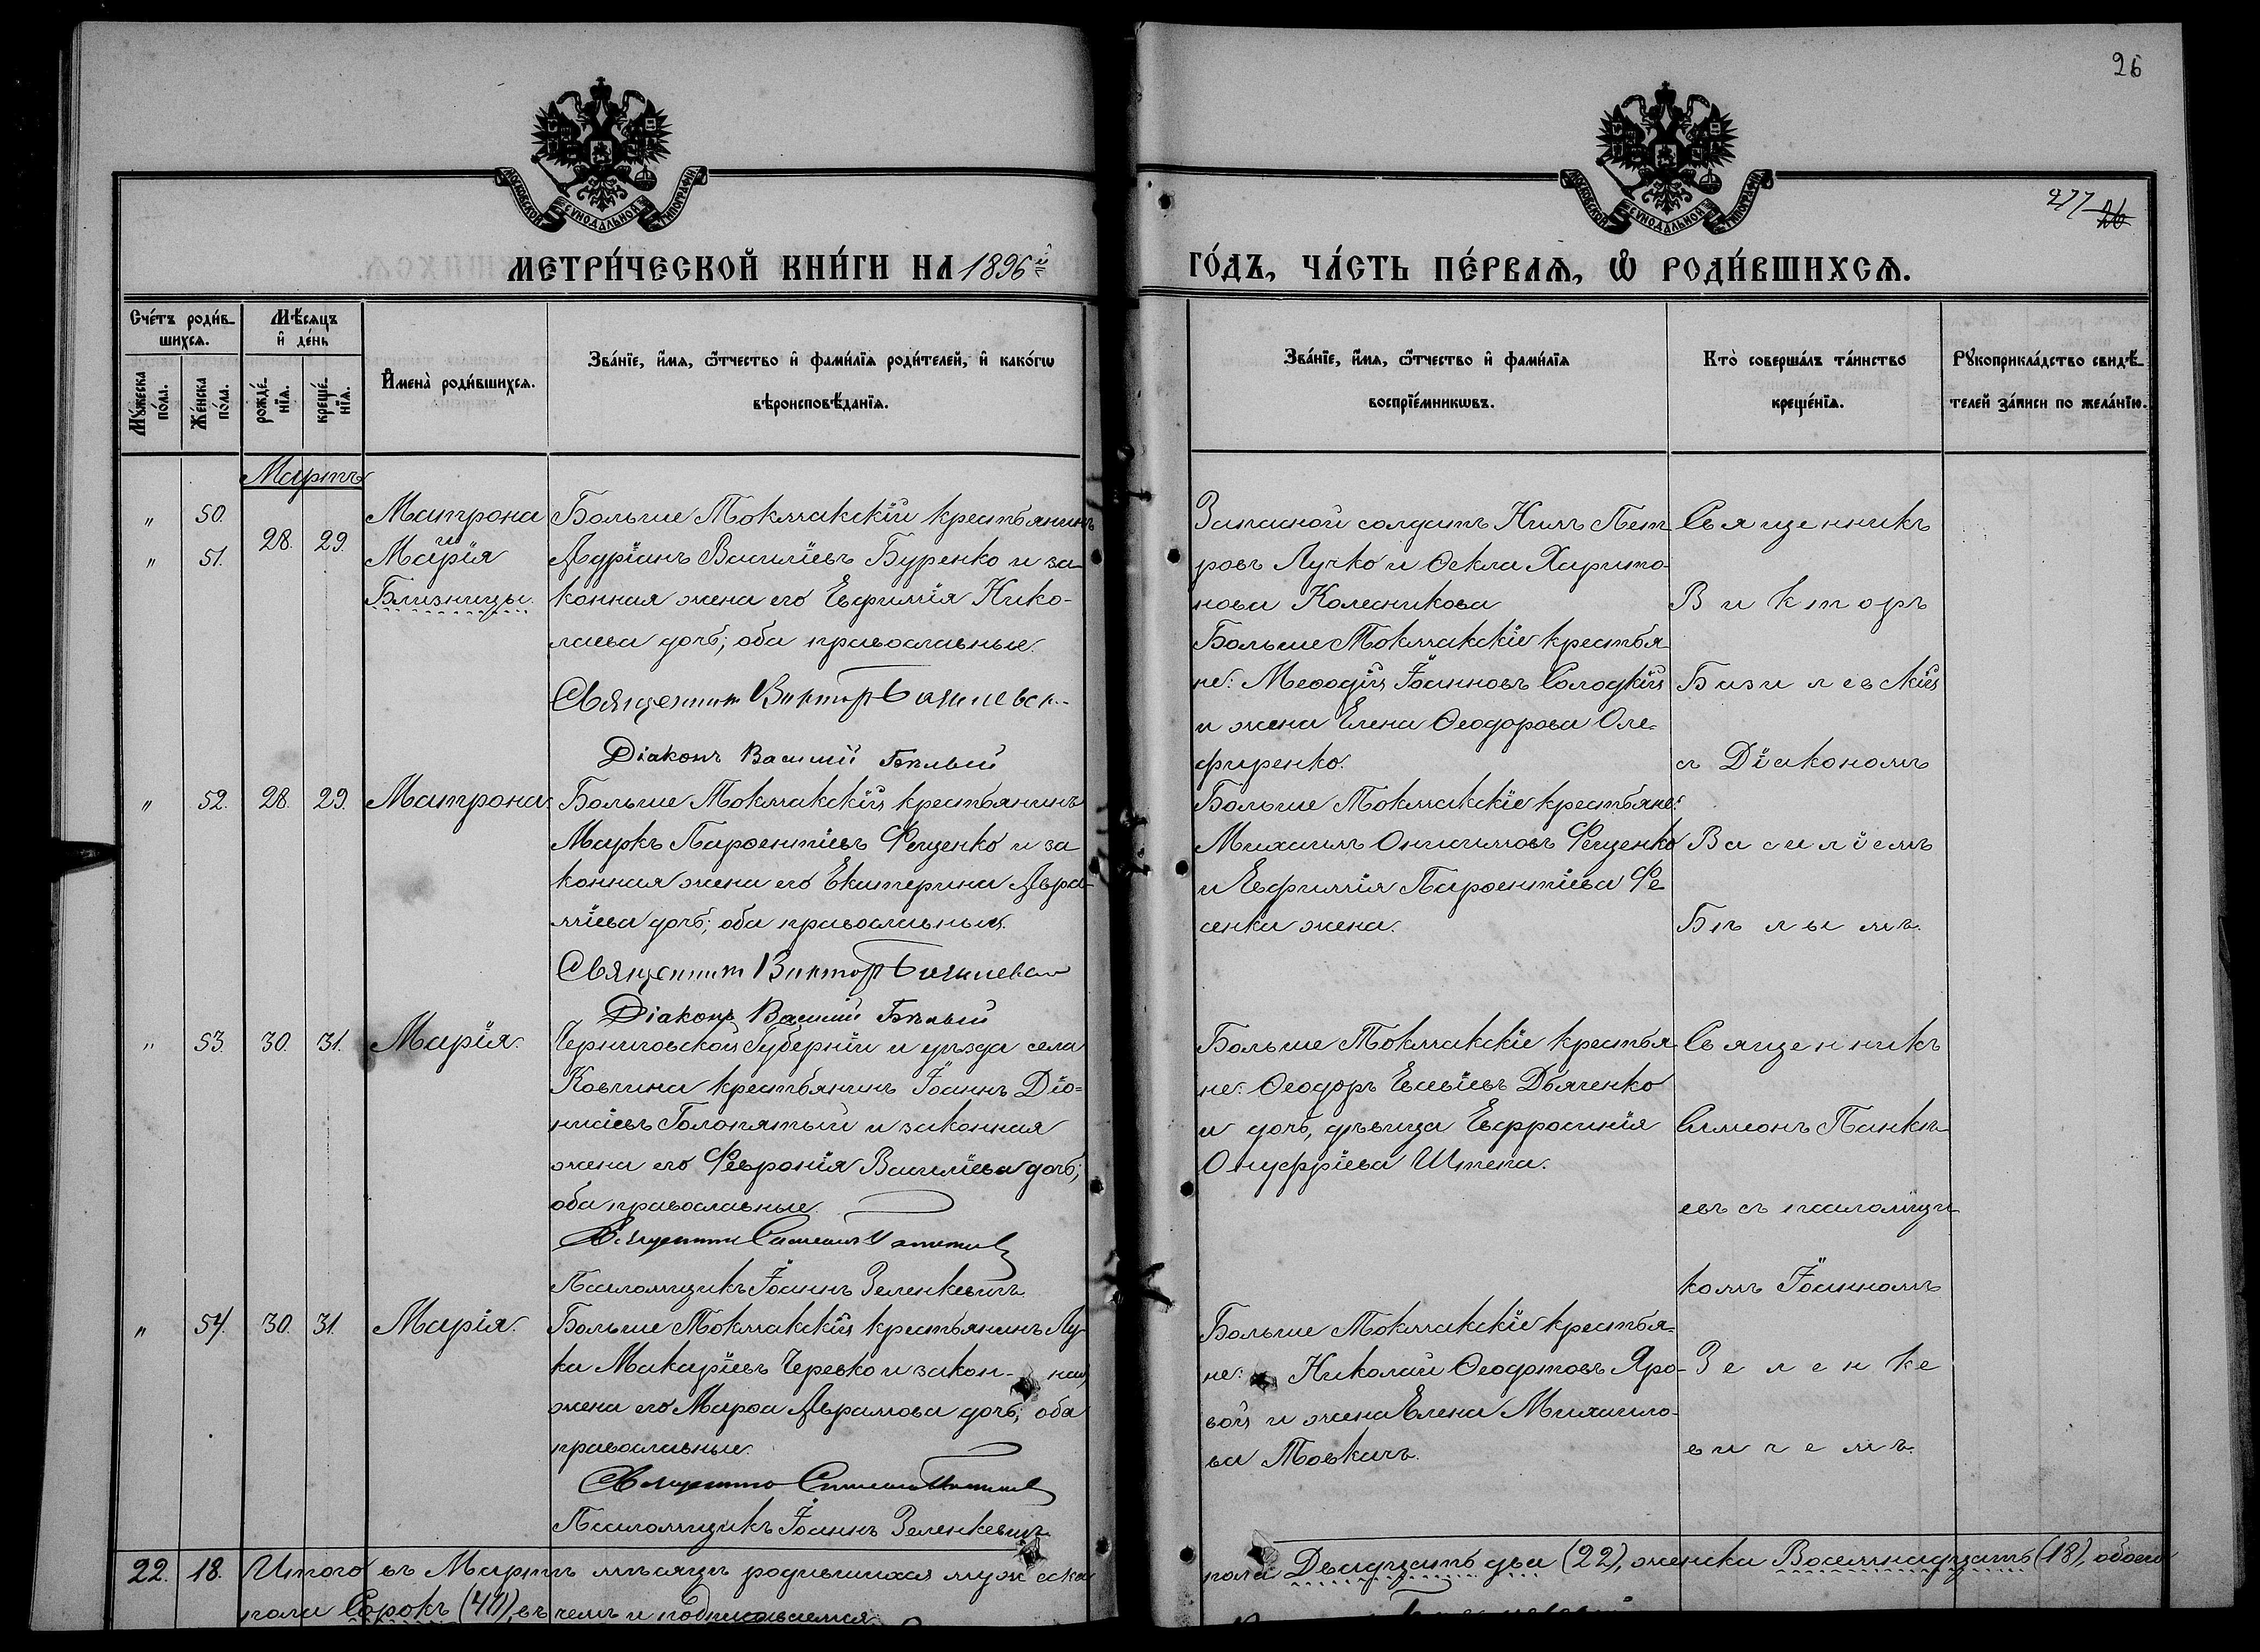 26
277 26
МОСКОВСКОЙ СѴНОДАЛЬНОЙ ТИПОГРАФІИ
МОСКОВСКОЙ СѴНОДАЛЬНОЙ ТИПОГРАФІИ
МЕТРИ́ЧЕСКОЙ КНИ́ГИ НА 1896й
ГО́ДЪ, ЧА́СТЬ ПЕ́РВАѦ, Ѡ РОДИ́ВШИХСѦ.
Сче́тъ роди́в-
шихсѧ.
Мꙋ́жеска по́ла.
Же́нска по́ла.
Мѣ́сѧцъ
и҆ де́нь
рожде́нїѧ.
креще́нїѧ.
И҆мена̀ роди́вшихсѧ.
Зва́нїе, и҆́мѧ, ѻ҆́тчество и҆ фами́лїѧ роди́телей, и҆ како́гѡ
вѣроисповѣ́данїѧ.
Зва́нїе, и҆́мѧ, ѻ҆́тчество и҆ фами́лїѧ
воспрїе́мникѡвъ.
Кто̀ соверша́лъ та́инство
креще́нїѧ.
Рꙋкоприкла́дство свидѣ́-
телей за́писи по жела́нїю.
Мартъ
" 50.
" 51.
28. 29.
Матрона
и
Марія
Близницы.
Больше Токмакскій крестьянинъ
Адріанъ Василіевъ Буренко и за-
конная жена его Евфимія Нико-
лаева дочь; оба православные.
Священникъ Викторъ Базилевск
Діаконъ Василій Бѣлый
Запасной солдатъ Нилъ Пет-
ровъ Лучко и Ѳекла Харито-
нова Колесникова
Больше Токмакскіе крестья-
не: Меѳодій Іоанновъ Солодкій
и жена Елена Ѳеодорова Оле-
фиренко.
Священникъ
Викторъ
Базилевскій
съ Діакономъ
Василіемъ
Бѣлымъ.
" 52. 28. 29. Матрона
Больше Токмакскій крестьянинъ
Маркъ Парѳентіевъ Фещенко и за
конная жена его Екатерина Авра-
міева дочь; оба православные.
Священникъ Викторъ Базилевск
Діаконъ Василій Бѣлый
Больше Токмакскіе крестьяне:
Михаилъ Онисимовъ Фещенко
и Евфимія Парѳентіева Фе
сенка жена.
" 53. 30. 31. Марія.
Черниговской Губерніи и уѣзда села
Ковчина крестьянинъ Іоаннъ Діо-
нисіевъ Голопятый и законная
жена его Февронія Василіева дочь;
оба православные.
Священникъ Симеонъ
Псаломщикъ Іоаннъ Зеленкевичъ
Больше Токмакскіе крестья
не: Ѳеодоръ Евсѣевъ Дьяченко
и дочь, дѣвица Евфросинія
Онуфріева Штепа.
Священникъ
Симеонъ Панкѣ-
евъ съ псаломщи-
комъ Іоанномъ
Зеленке
вичемъ.
" 54. 30. 31. Марія.
Больше Токмакскій крестьянинъ Лу-
ка Макаріевъ Черевко и закон- ная
жена его Марѳа Аврамова дочь; оба
православные.
Священникъ Симеонъ
Псаломщикъ Іоаннъ Зеленкевичъ
Больше Токмакскіе крестья-
не: Николай Ѳеодотовъ Яро-
вой и жена Елена Михаило-
ва Товкачъ.
22. 18. Итого въ Мартѣ мѣсяцѣ родившихся мужеска
пола Двадцать два (22), женска Восемнадцать (18), обоего
пола Сорокъ (40), въ чемъ и подписываемся